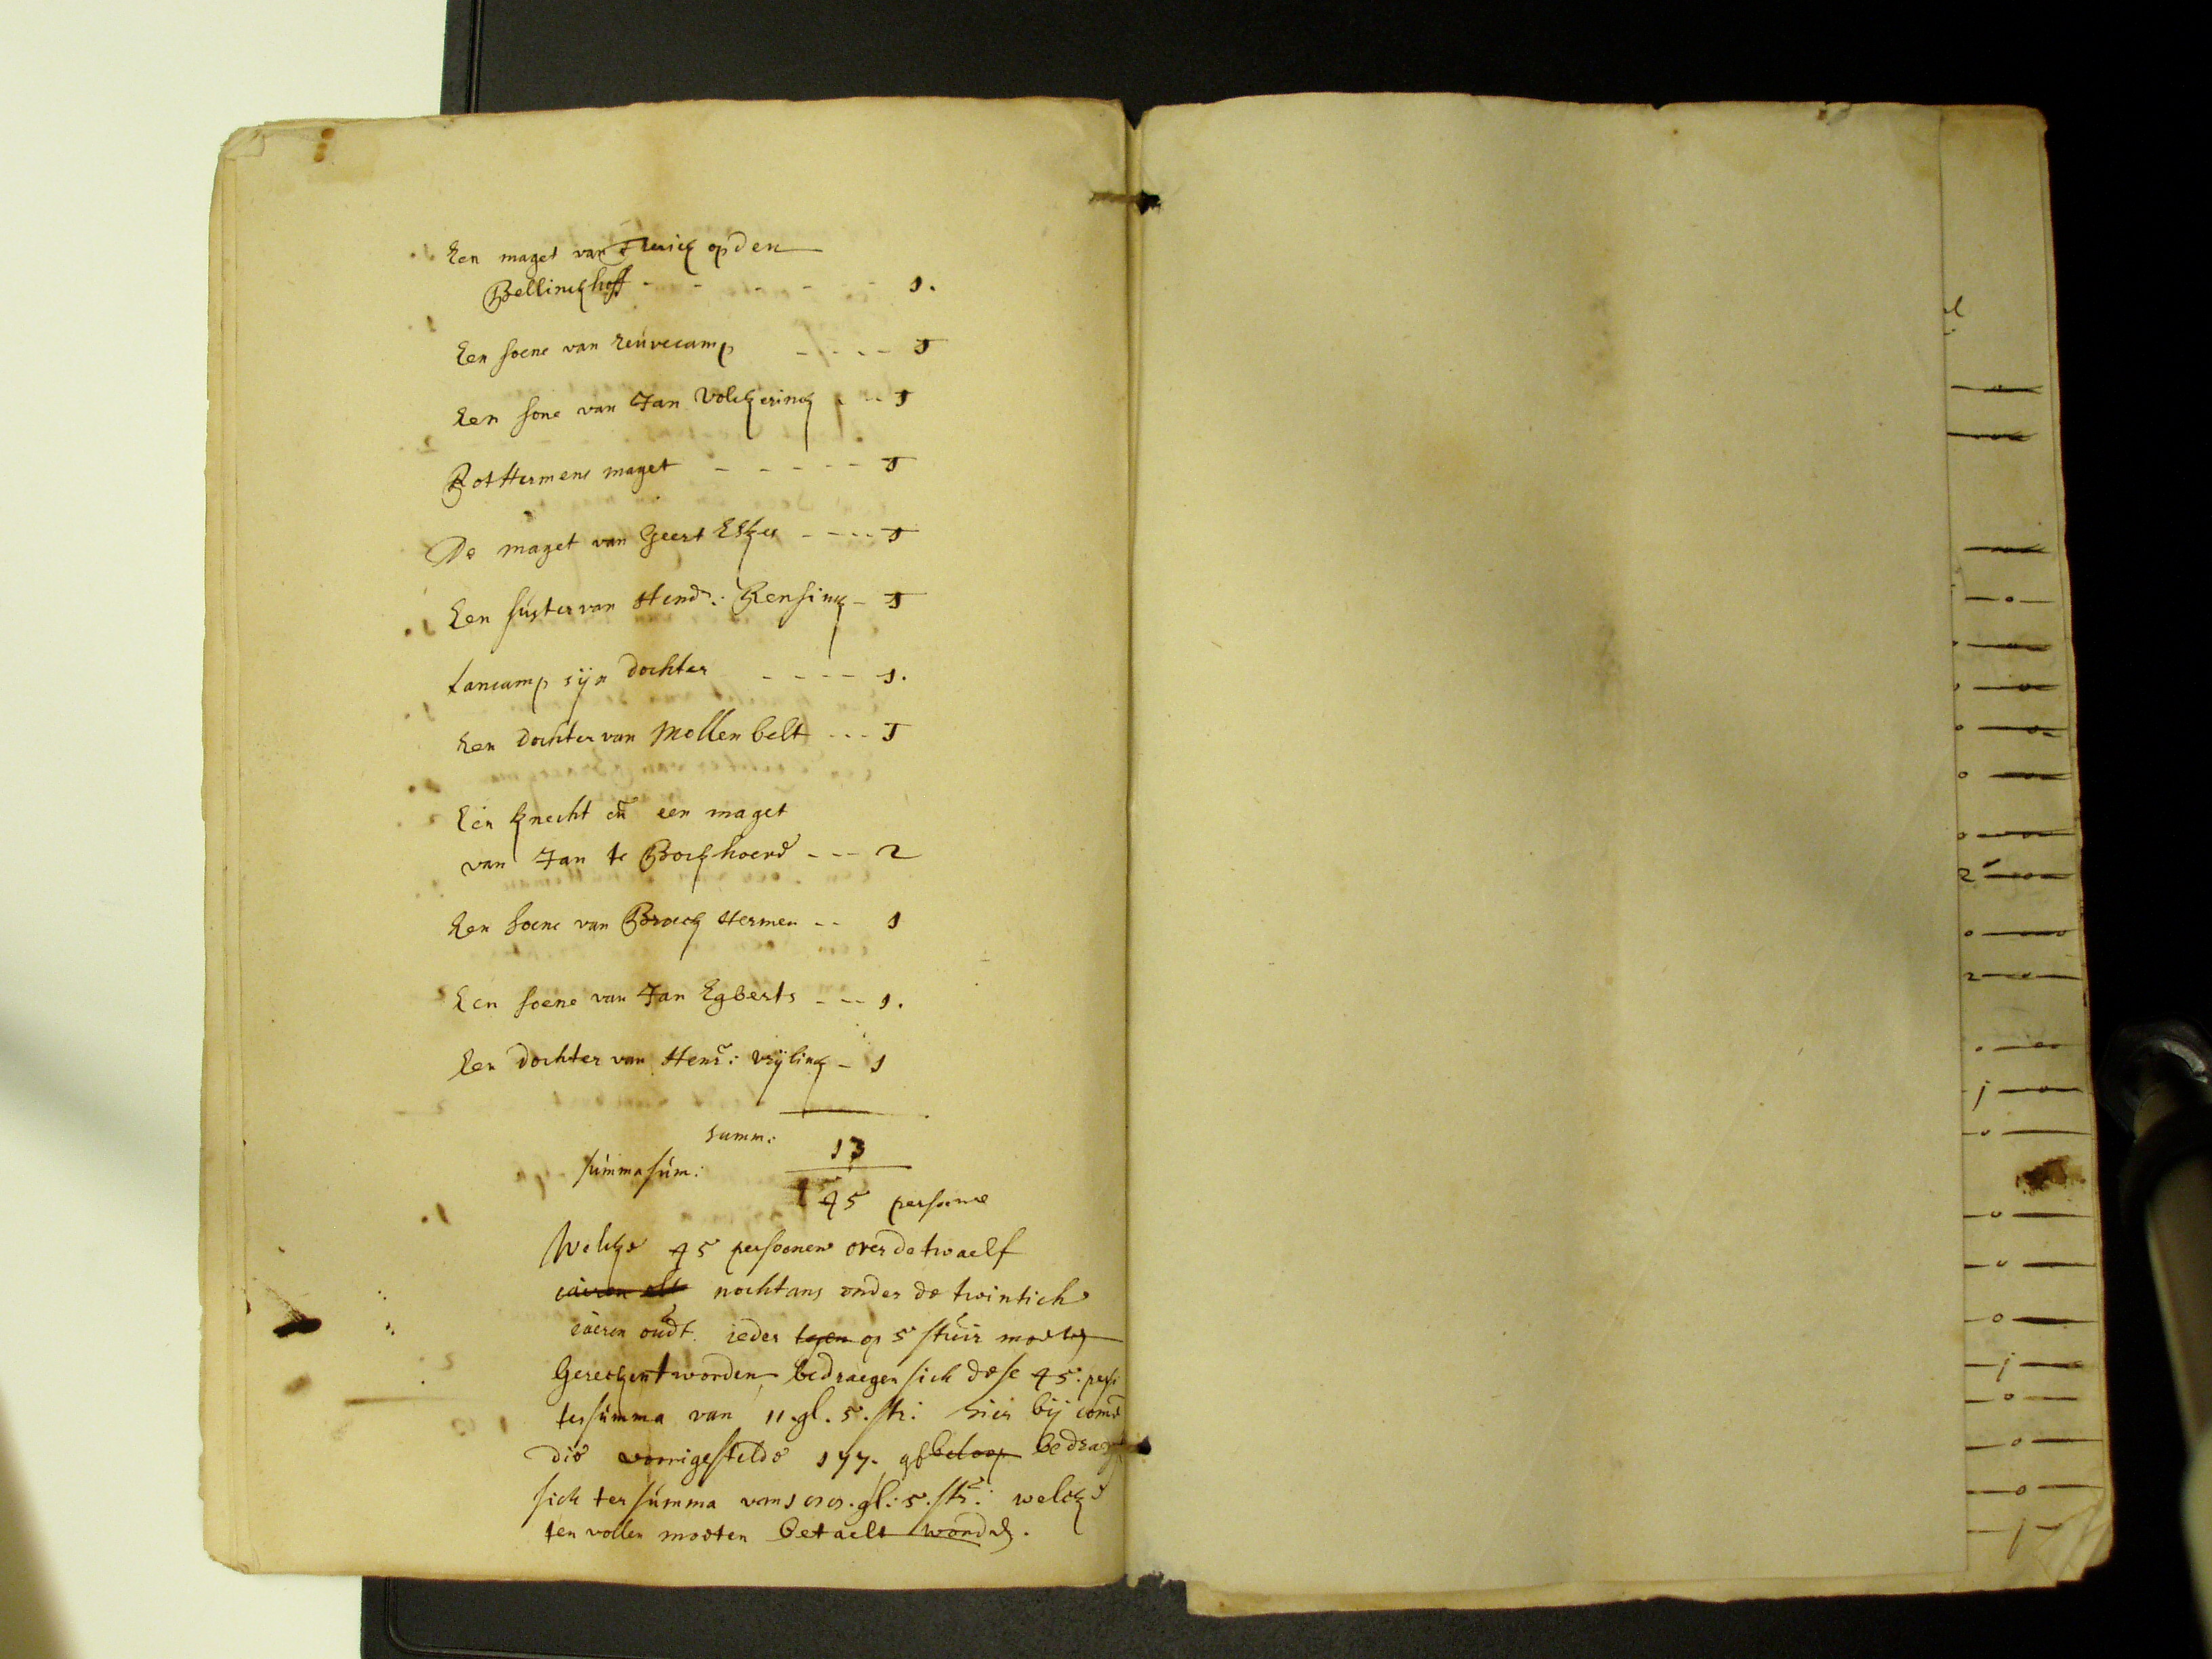 Een maget van opden
Bellinckhoff - - - - - 1.
Een soene van reuvecamp - - - - 1
Een sone van Jan Volckerinck - - - 1
Bot Hermens maget - - - - - 1
De maget van Geert Esker - - - - 1
Een suster van Hend: Rensinck - 1
Lancamp sijn dochter - - - - 1.
Een dochter van Mollenbelt - - - 1
Een knecht en een maget
van Jan te Bockhoend - - - 2
Een soene van Broeck Hermen - - 1
Een soene van Jan Egberts - - - 1.
Een dochter van Henr: vrijlinck - 1
summ: 13
summa sum:
45 persoene
Welcke 45 persoenen over de twaelf
iaeren olt nochtans onder de twintich
iaeren oudt. ieder op 5 stuir moeten
Gereckent worden, bedraegen sich dese 45. pers:
ter summa van 11. gl. 5. str: hier bij come
die 177. gl beloop bedraegt
sich ter summa van gl: 5. str: welcke
ten vollen moeten betaelt worden.
2
2
1
1